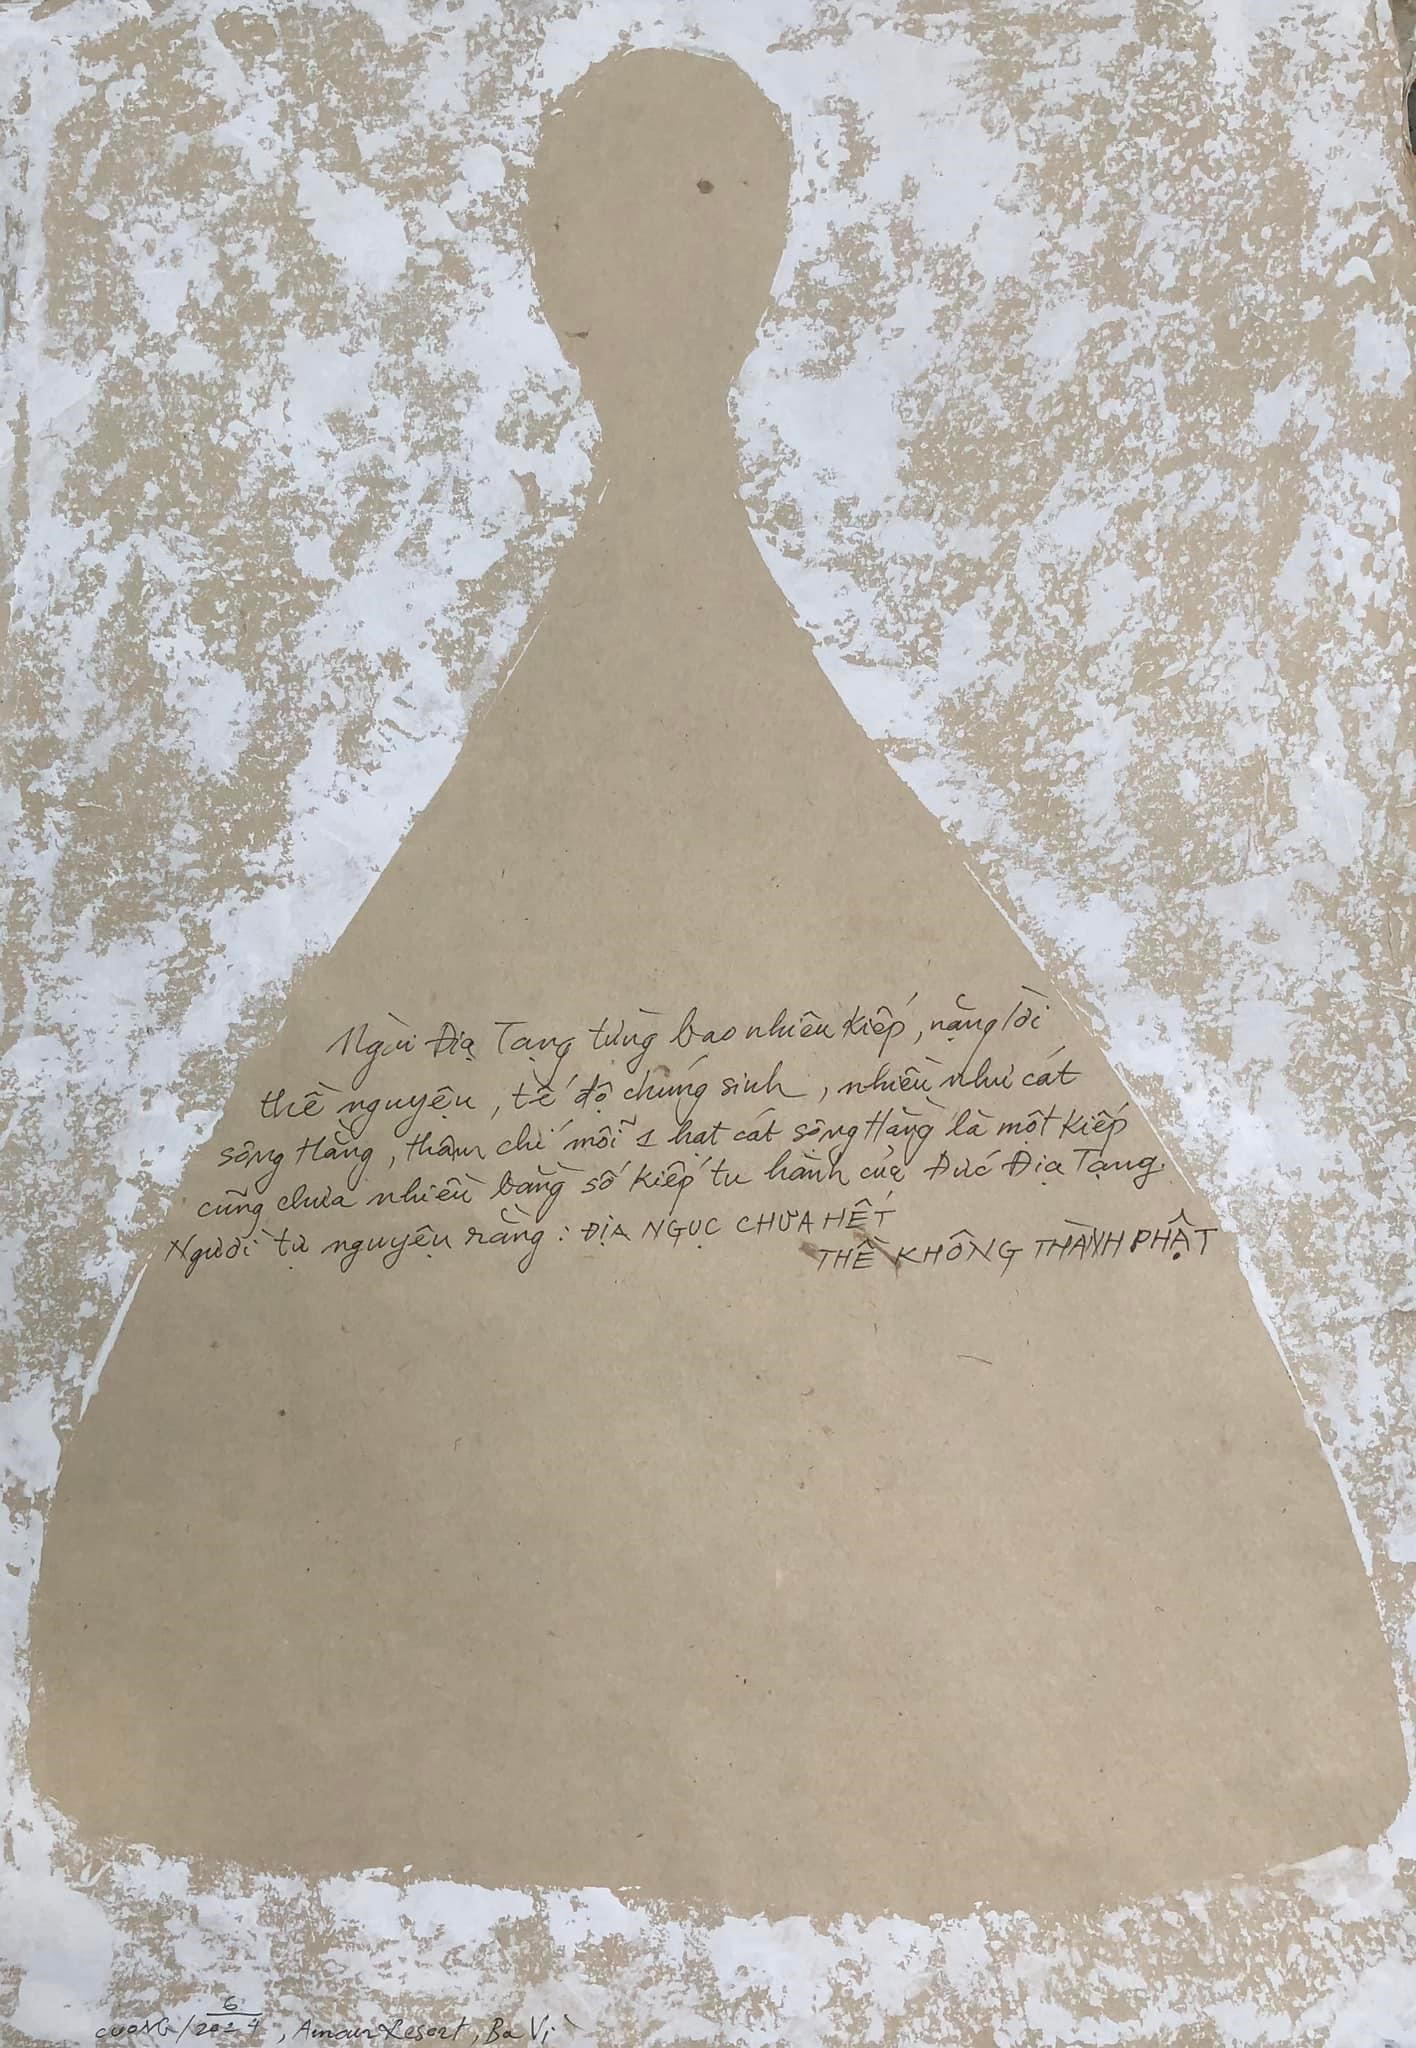 Ngài Địa Tạng từng bao nhiêu kiếp, nặng lời
thề nguyện, tế độ chúng sinh, nhiều như cát
sông Hằng, thậm chí mỗi 1 hạt cát sông Hằng là một kiếp
cũng chưa nhiều bằng số kiếp tu hành của Đức Địa Tạng.
Người tự nguyện rằng: ĐỊA NGỤC CHƯA HẾT
THỀ KHÔNG THÀNH PHẬT
CUONG / 6 2024, Amour Resort, Ba Vì